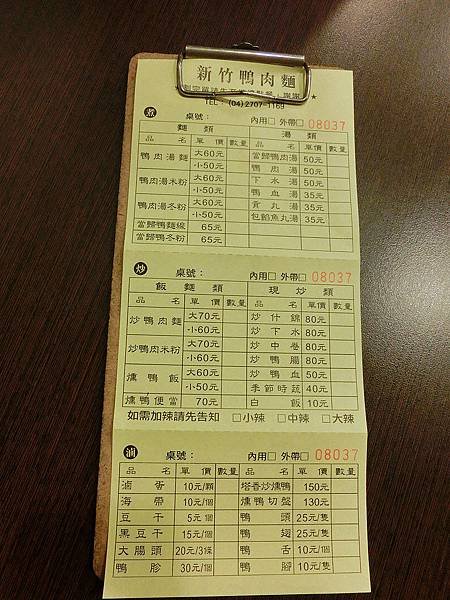 新竹鴨肉麵
TEL： (04)2707-1169 ★
煮 桌號： 內用□ 外帶□ 08037
麵類 湯類
品名 單價 數量 品名 單價 數量
鴨肉湯麵 大60元 當歸鴨肉湯 50元
小50元 鴨肉湯 50元
鴨肉湯米粉 大60元 下水湯 50元
小50元 鴨血湯 35元
鴨肉湯冬粉 大60元 貢丸湯 35元
小50元 包餡魚丸湯 35元
當歸鴨麵線 65元
當歸鴨冬粉 65元
炒 桌號： 內用□ 外帶□ 08037
飯麵類 現炒類
品名 單價 數量 品名 單價 數量
炒鴨肉麵 大70元 炒什錦 80元
小60元 炒下水 80元
炒鴨肉米粉 大70元 炒中卷 80元
小60元 炒鴨腸 80元
燻鴨飯 大60元 炒鴨血 50元
小50元 季節時蔬 40元
燻鴨便當 70元 白飯 10元
如需加辣請先告知 □小辣 □中辣 □大辣
滷 桌號： 內用□ 外帶□ 08037
品名 單價 數量 品名 單價 數量
滷蛋 10元/顆 塔香炒燻鴨 150元
海帶 10元/個 燻鴨切盤 130元
豆干 5元/個 鴨頭 25元/隻
黑豆干 15元/個 鴨翅 25元/隻
大腸頭 20元/3條 鴨舌 10元/個
鴨胗 30元/個 鴨腳 10元/隻